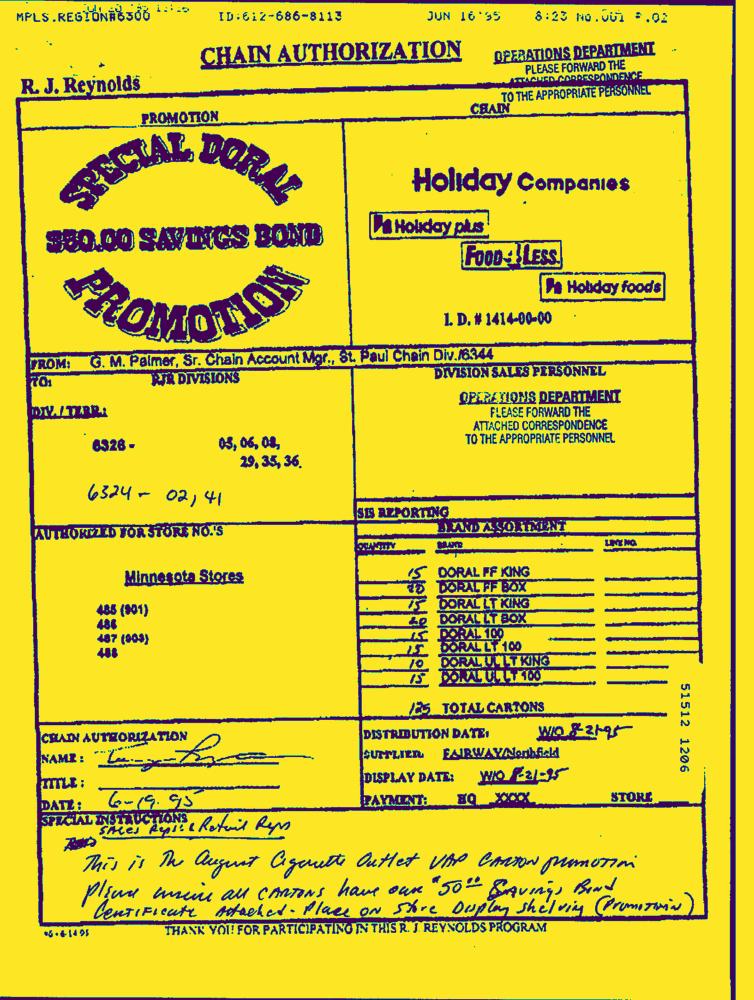 MPLS.REGION#6300 ID:612-686-8113 JUN 16'95 8:23 No.001 P.02
CHAIN AUTHORIZATION
OPERATIONS DEPARTMENT
PLEASE FORWARD THE
ATTACHED CORRESPONDENCE
TO THE APPROPRIATE PERSONNEL
R. J. Reynolds
PROMOTION
CHAIN
SPECIAL DORAL
$50.00 SAVINGS BOND
PROMOTION
Holiday Companies
Holiday plus
FOOD 4 LESS
Holiday foods
I. D. # 1414-00-00
FROM: G. M. Palmer, Sr. Chain Account Mgr., St. Paul Chain Div./6344
TO: RJR DIVISIONS
DIVISION SALES PERSONNEL
DIV. / TERR.:
OPERATIONS DEPARTMENT
PLEASE FORWARD THE
ATTACHED CORRESPONDENCE
TO THE APPROPRIATE PERSONNEL
6326 - 05, 06, 08,
29, 35, 36
6324 - 02, 41
SIS REPORTING
AUTHORIZED FOR STORE NO.'S
BRAND ASSORTMENT
QUANTITY BRAND LINE NO.
Minnesota Stores
485 (901)
486
487 (903)
488
15 DORAL FF KING
20 DORAL FF BOX
15 DORAL LT KING
20 DORAL LT BOX
15 DORAL 100
15 DORAL LT 100
10 DORAL UL LT KING
15 DORAL UL LT 100
125 TOTAL CARTONS
51512 1206
CHAIN AUTHORIZATION
NAME:
TITLE:
DATE: 6-19-95
DISTRIBUTION DATE: W/O 8-21-95
SUPPLIER: FAIRWAY/Northfield
DISPLAY DATE: W/O 8-21-95
PAYMENT: HQ XXXX STORE
SPECIAL INSTRUCTIONS
Sales Reps & Retail Reps
This is The August Cigarette Outlet VAP CARTON promotion
Please ensure all CARTONS have our $50.00 Savings Bond
Certificate Attached - Place on Store Display shelving (Promotion)
THANK YOU FOR PARTICIPATING IN THIS R. J REYNOLDS PROGRAM